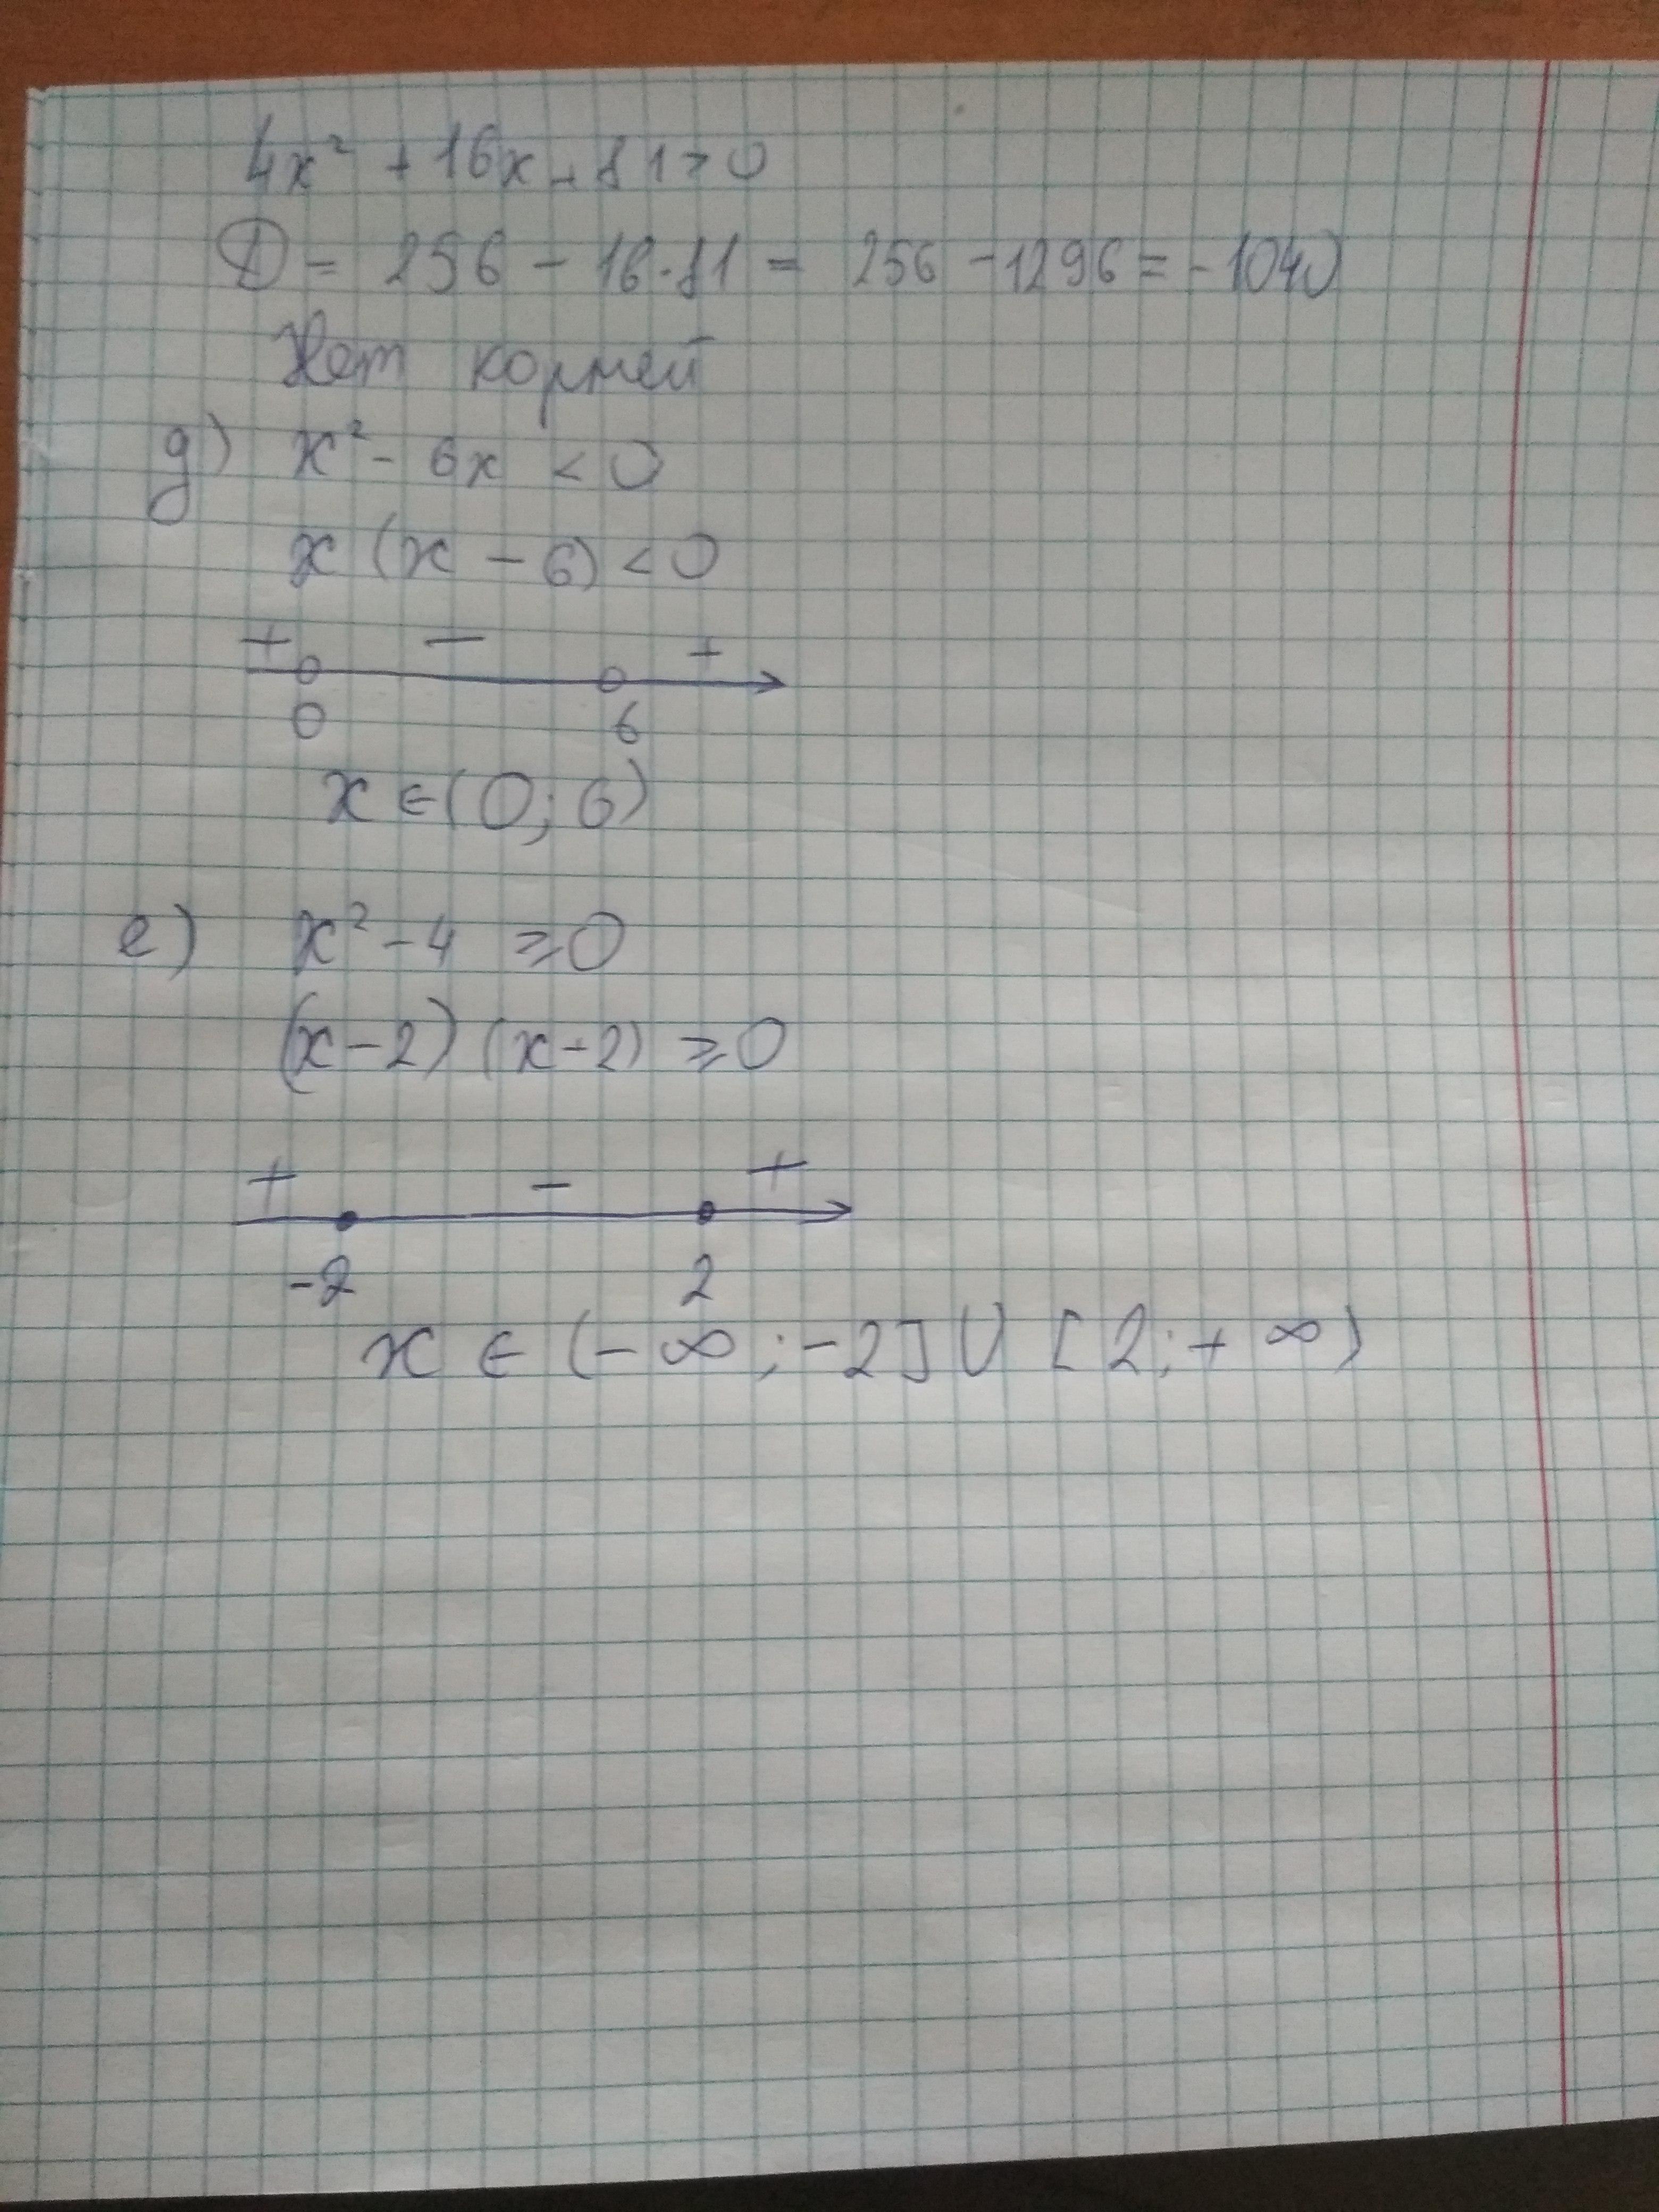 4x² + 16x + 81 > 0
D = 256 - 16·81 = 256 - 1296 = -1040
Нет корней
д) x² - 6x < 0
x (x - 6) < 0
+ - +
0 6
x ∈ (0; 6)
е) x² - 4 ≥ 0
(x - 2) (x + 2) ≥ 0
+ - +
-2 2
x ∈ (-∞; -2] U [2; +∞)